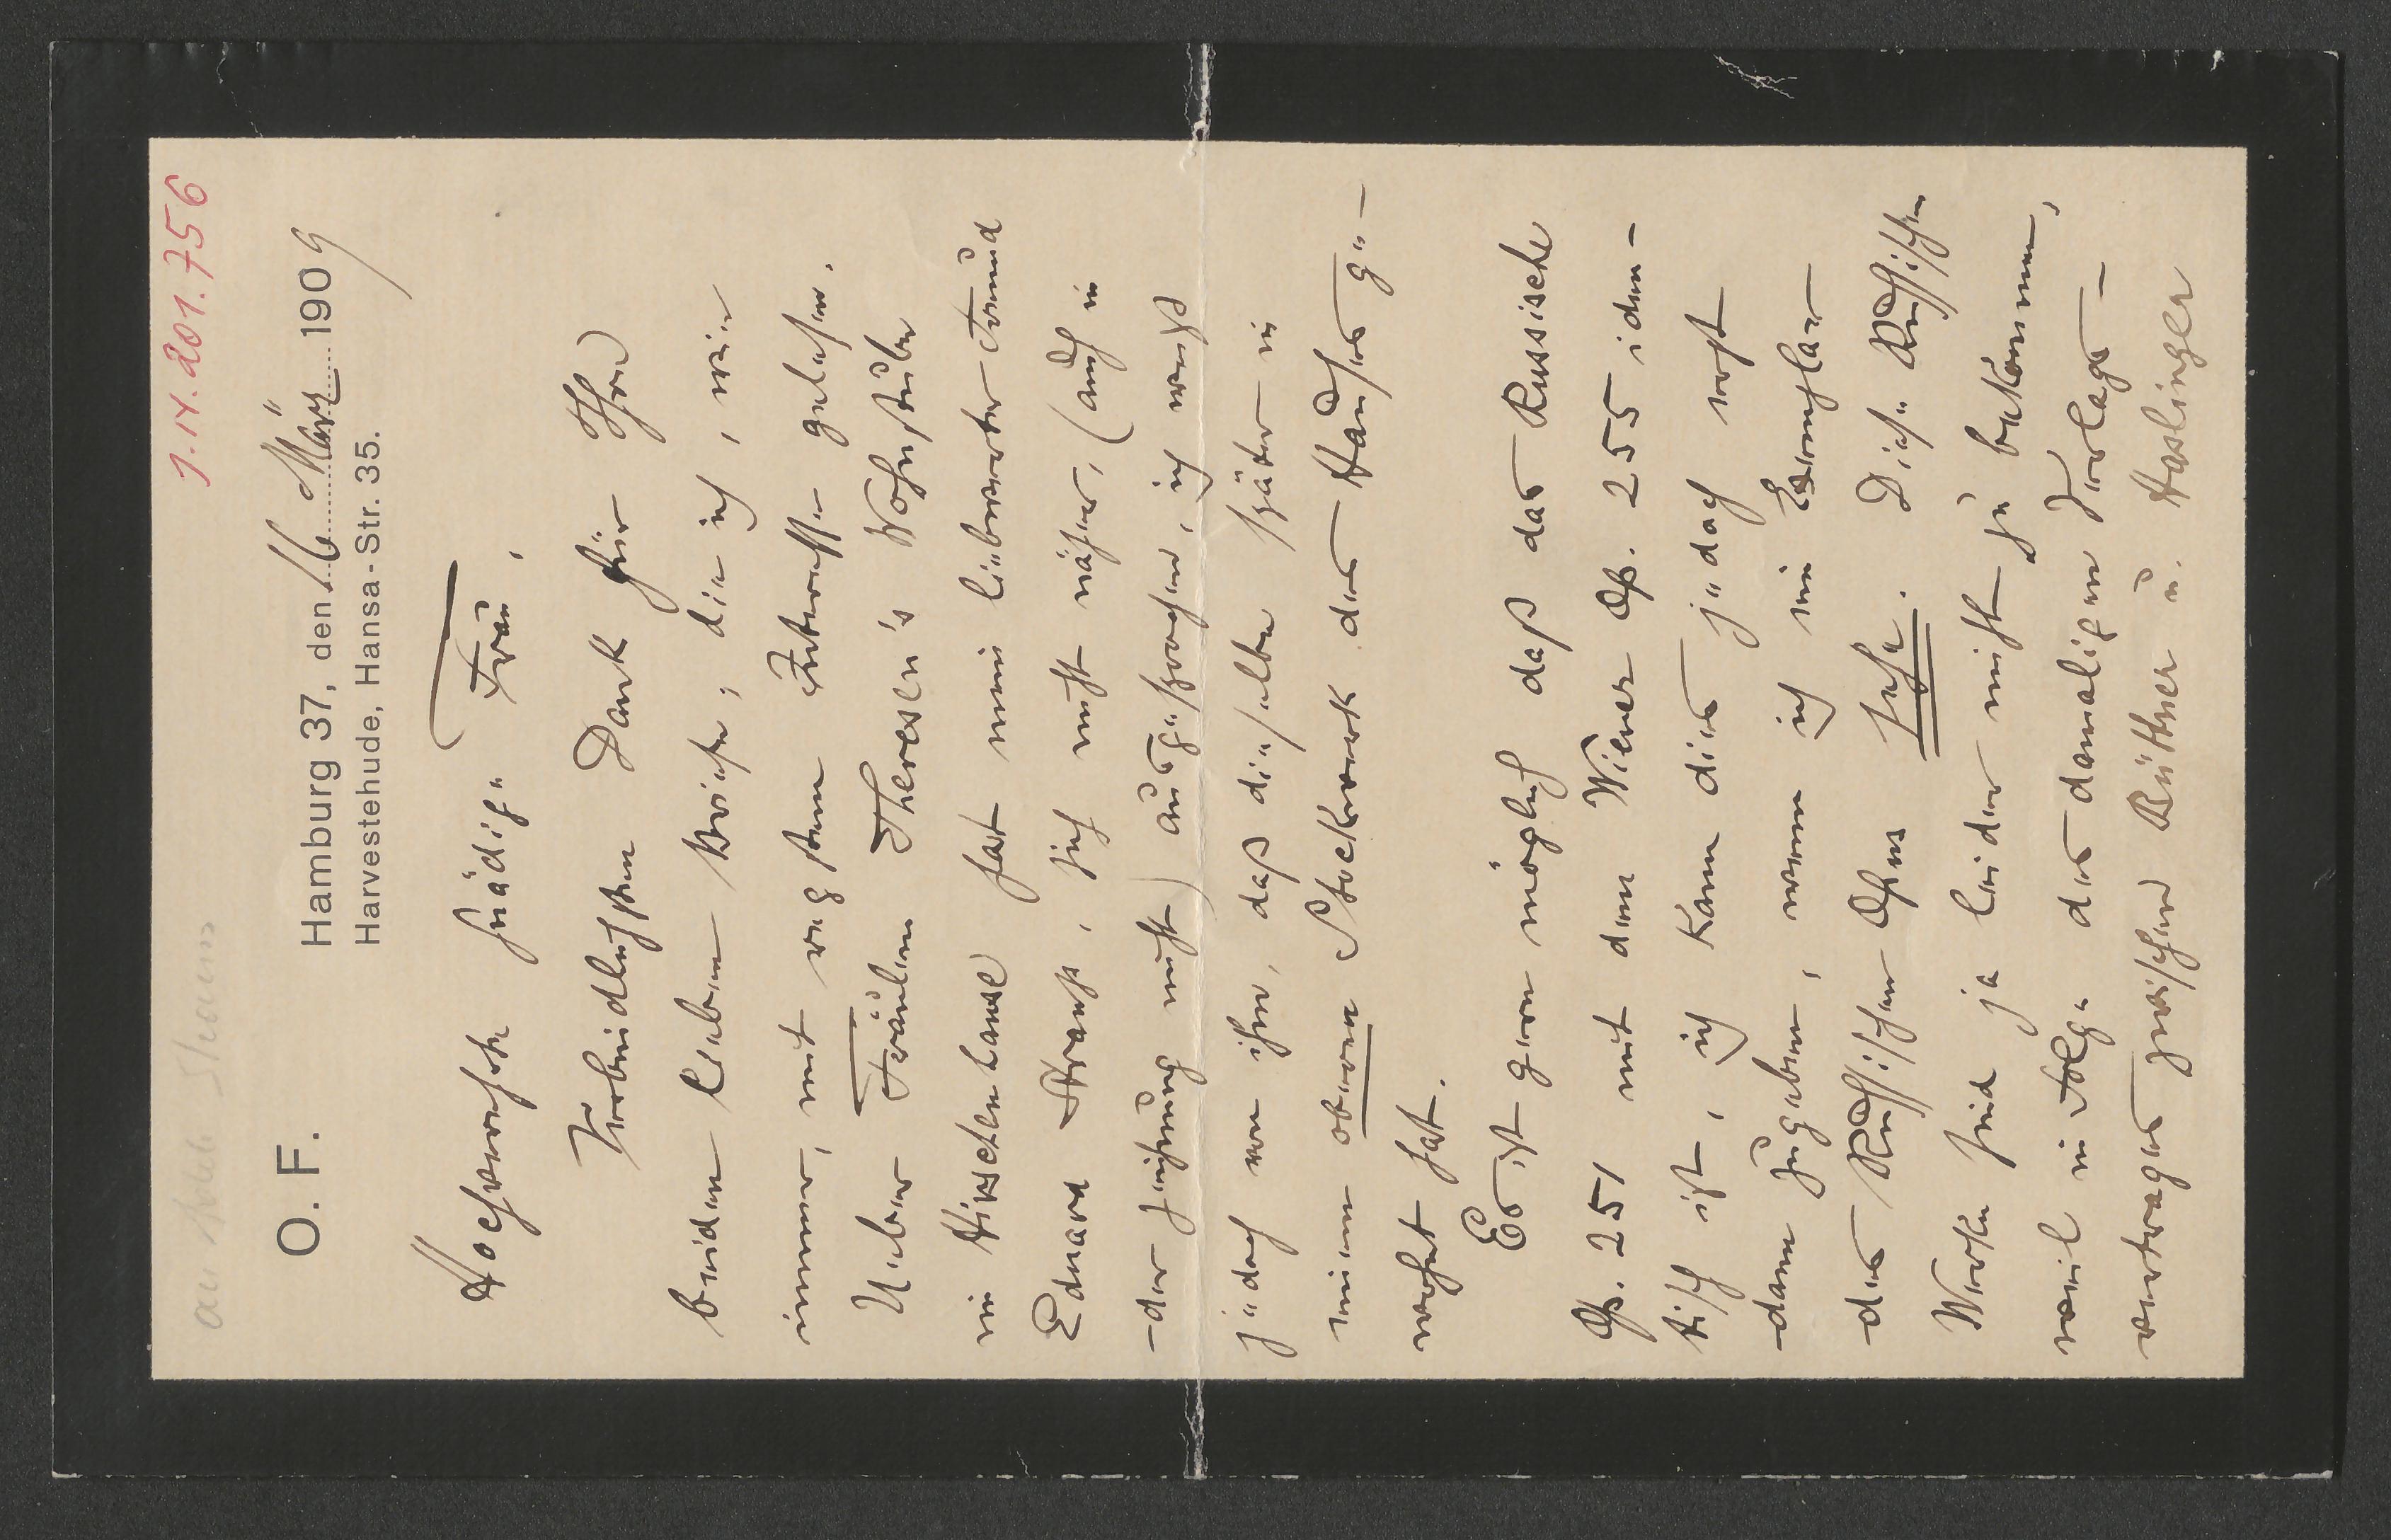 J.N. 201.756
an Adele Strauss
O. F.
Hamburg 37, den 16 März 1909
Harvestehude, Hansa-Str. 35.
Hochverehrte gnädige Frau,
Verbindlichsten Dank für Ihre
beiden lieben Briefe, die ich, wie
immer, mit regstem Interesse gelesen.
Ueber Fräulein Theresen's Wohnstube
im Hirschenhause hat mein liebwerter Freund
Eduard Strauss, sich nicht näher, (auch in
der Zeichnung nicht) ausgesprochen, ich weiß
jedoch von ihm, daß dieselbe später in
einem oberen Stockwerk des Hauses ge-
wohnt hat.
Es ist gern möglich daß das Russische
Op. 251 mit dem Wiener Op. 255 iden-
tisch ist, ich kann dies jedoch erst
dann zugeben, wenn ich ein Exemplar
des Russischen Opus sehe. Diese Russischen
Werke sind ja leider nicht zu bekommen,
weil in Folge des damaligen Verlags-
vertrages zwischen Büttner u. Haslinger